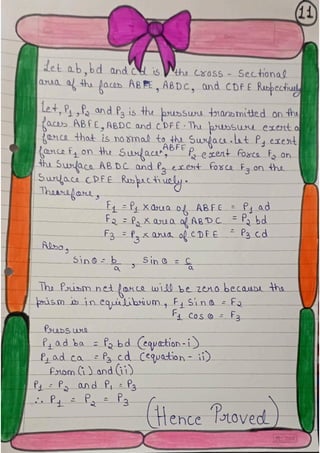 11
Let ab, bd and cd is the cross - sectional
area of the faces ABFE, ABDC, and CDFE Respectively
Let, P₁, P₂ and P₃ is the pressure transmitted on the
faces ABFE, ABDC and CDFE. The pressure exert a
force that is normal to the Surface. Let P₁ exert
force F₁ on the Surface, ABFE P₂ exert Force F₂ on
the Surface ABDC and P₃ exert Force F₃ on the
Surface CDFE Respectively.
Therefore,
F₁ = P₁ x area of ABFE = P₁ ad
F₂ = P₂ x area of ABDC = P₂ bd
F₃ = P₃ x area of CDFE = P₃ cd
Also,
Sin θ = b/a , Sin θ = c/a
The Prism net force will be zero because the
prism is in equilibrium, F₁ Sin θ = F₂
F₁ cos θ = F₃
Pressure
P₁ ad ba = P₂ bd (equation-i)
P₁ ad ca = P₃ cd (equation - ii)
From (i) and (ii)
P₁ = P₂ and P₁ = P₃
∴ P₁ = P₂ = P₃
(Hence Proved)